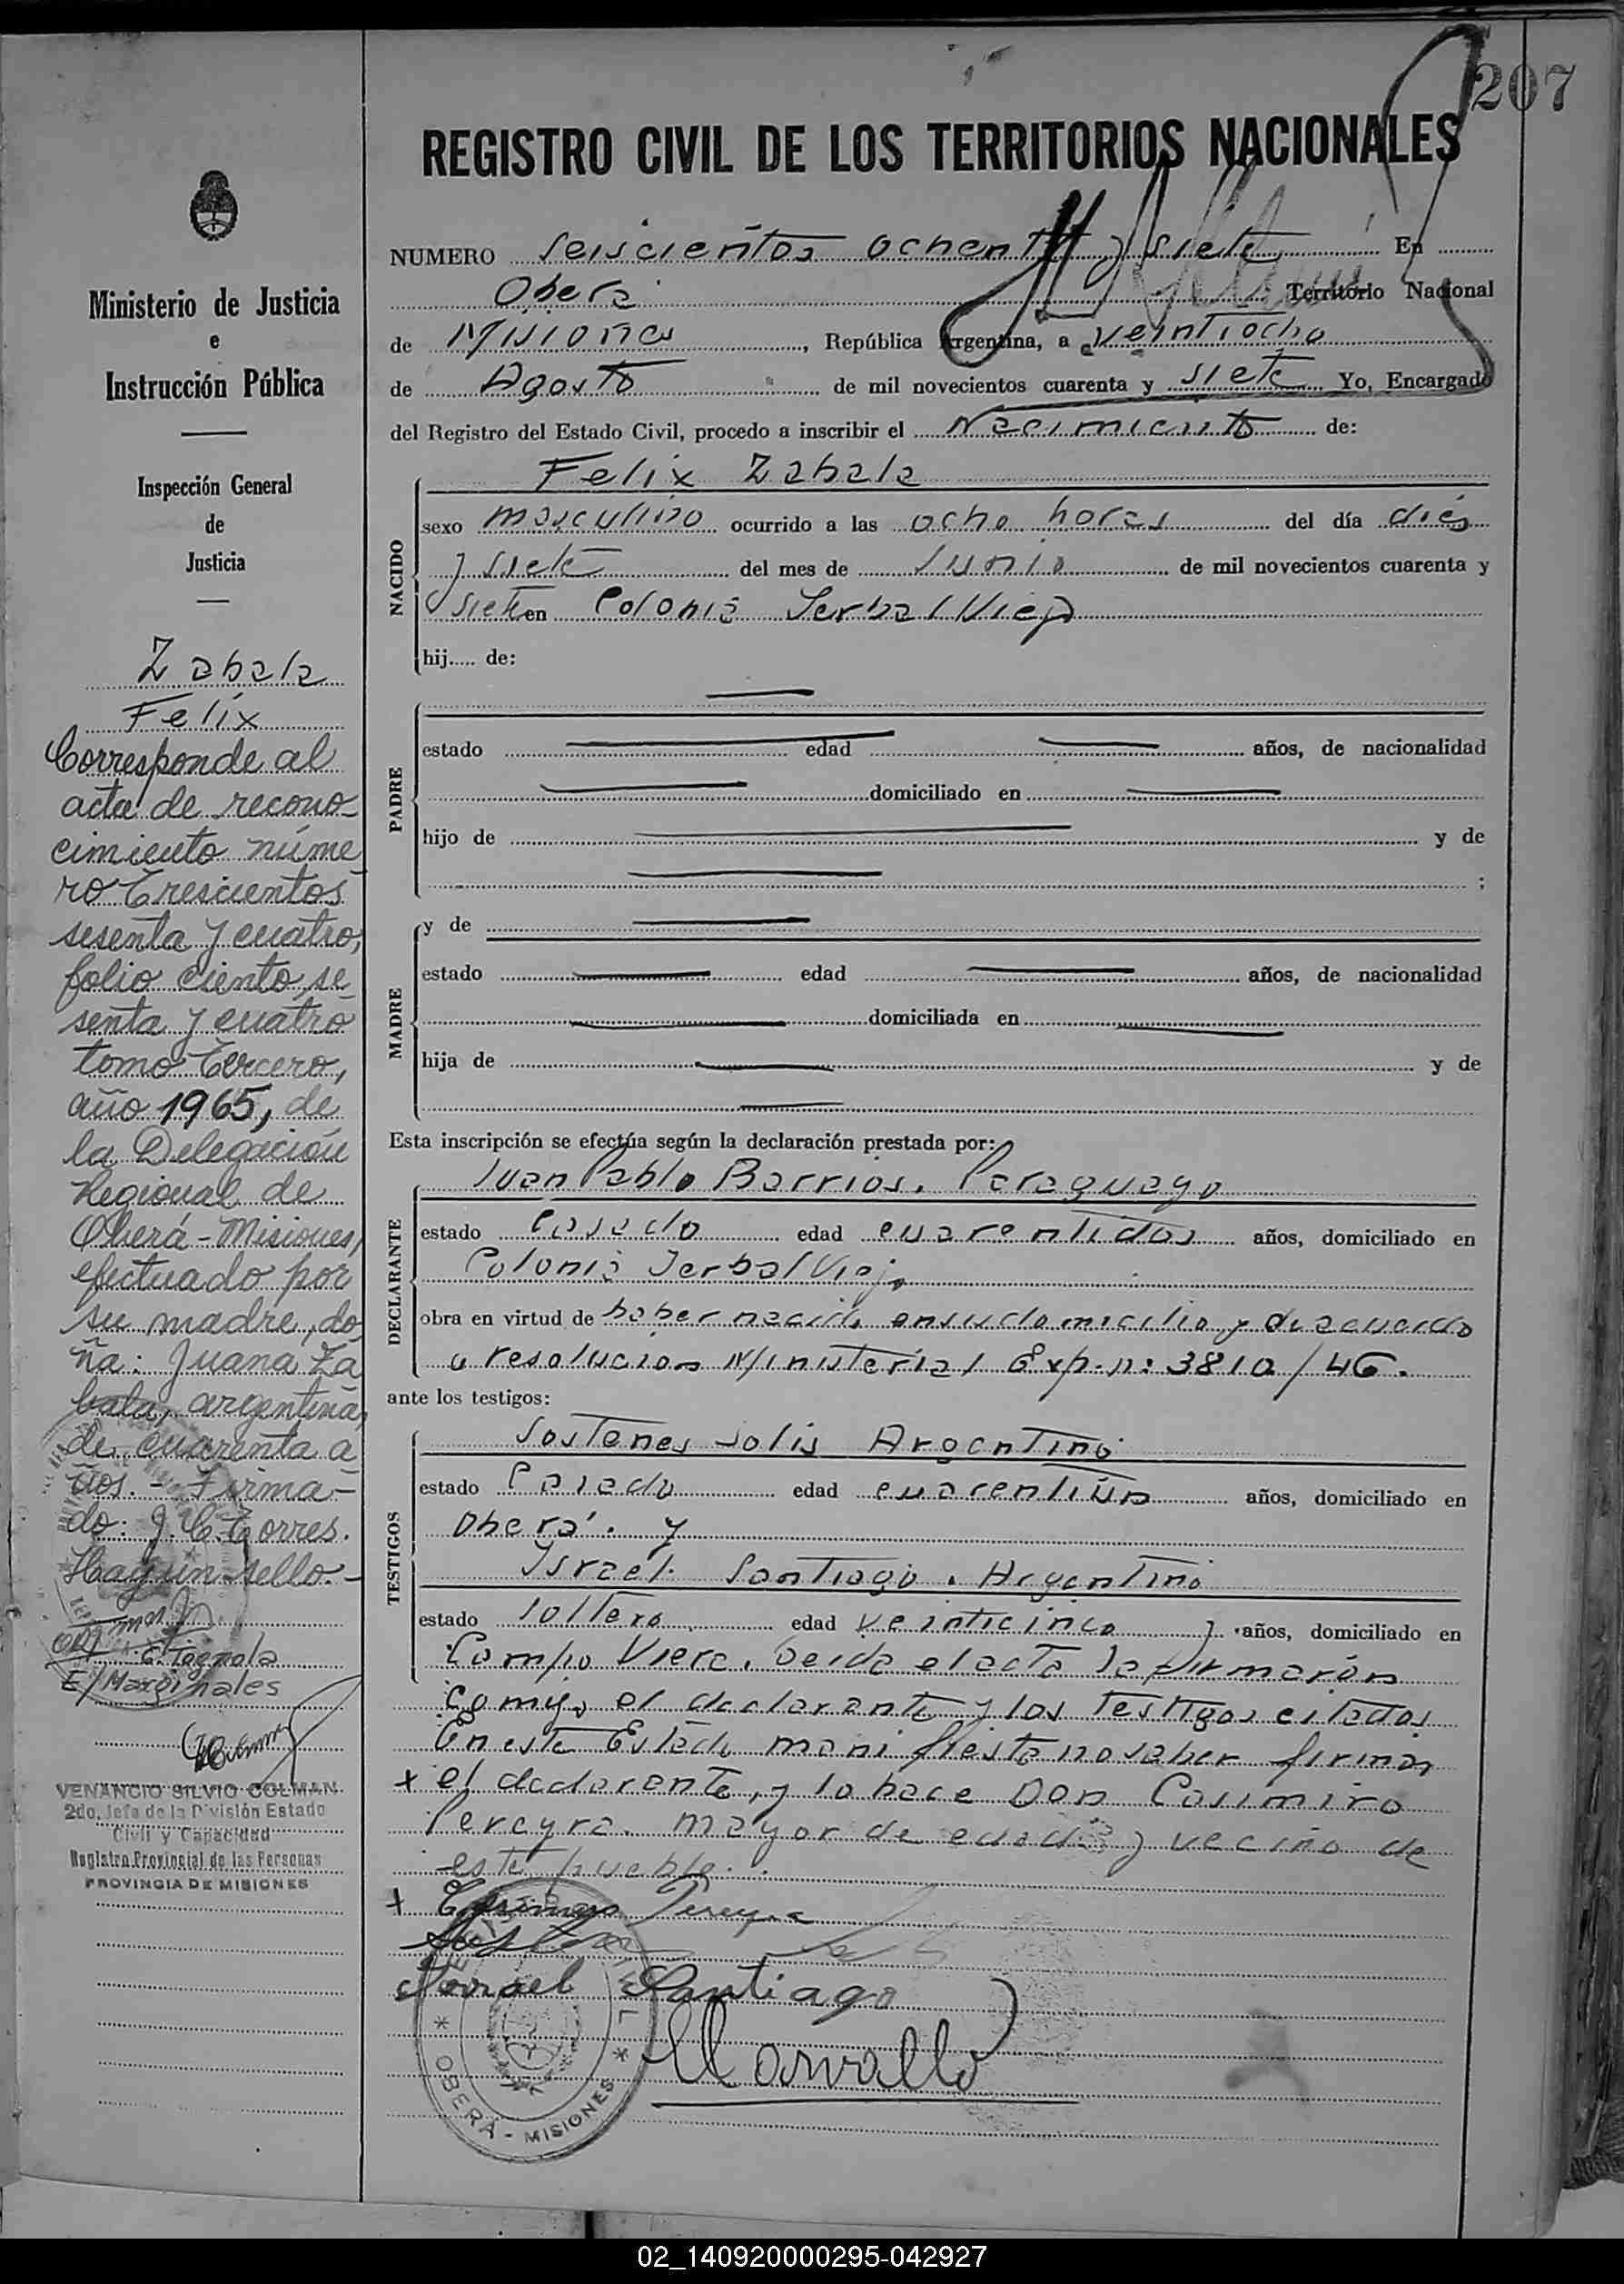 207
REGISTRO CIVIL DE LOS TERRITORIOS NACIONALES
NUMERO Seiscientos ochenta y siete En
Oberá Territorio Nacional
de Misiones, República Argentina, a veintiocho
de Agosto de mil novecientos cuarenta y siete Yo, Encargado
del Registro del Estado Civil, procedo a inscribir el Nacimiento de:
NACIDO
Felix Zabala
sexo masculino ocurrido a las ocho horas del día diés
y siete del mes de Junio de mil novecientos cuarenta y
siete en Colonia Yerbal Viejo
hij..... de:
PADRE
estado edad años, de nacionalidad
domiciliado en
hijo de y de
;
MADRE
y de
estado edad años, de nacionalidad
domiciliada en
hija de y de
Esta inscripción se efectúa según la declaración prestada por:
DECLARANTE
Juan Pablo Barrios. Paraguayo
estado Casado edad cuarentidos años, domiciliado en
Colonia Yerbal Viejo
obra en virtud de haber nacido en su domicilio y de acuerdo
a resolucion Ministerial Exp. n: 3810/46.
ante los testigos:
TESTIGOS
Sostenes Solis Argentino
estado Casado edad cuarentiún años, domiciliado en
Oberá. y
Israel Santiago. Argentino
estado soltero edad veinticinco años, domiciliado en
Campo Viera. Leida el acta la firmarón
comigo el declarante y los testigos citados
En este Estado manifiesta no saber firmar
+ el declarante, y lo hace Don Casimiro
Pereyra. mayor de edad y vecino de
este pueblo.
+ Casimiro Pereyra
Israel Santiago
OBERÁ - MISIONES
Ministerio de Justicia
e
Instrucción Pública
Inspección General
de
Justicia
Zabala
Felix
Corresponde al
acta de recono-
cimiento núme
ro Trescientos
sesenta y cuatro,
folio ciento se
senta y cuatro
tomo Tercero,
año 1965, de
la Delegación
Regional de
Oberá-Misiones,
efectuado por
su madre, do
ña: Juana Za
bala, argentina,
de cuarenta a-
ños. - Firma-
do: J. C. Torres.
Hay un sello.-
E/Marginales
VENANCIO SILVIO COLMAN
2do. Jefe de la División Estado
Civil y Capacidad
Registro Provincial de las Personas
PROVINCIA DE MISIONES
02_140920000295-042927